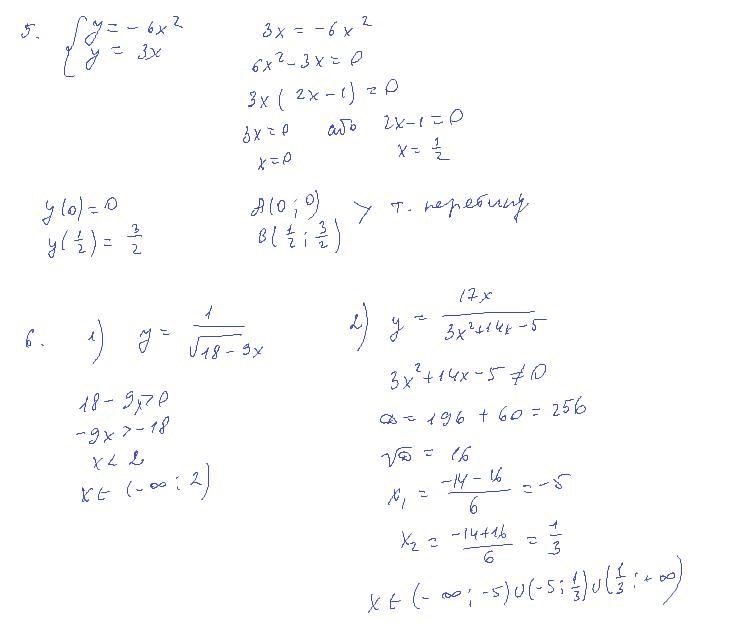 5. { y = -6x²
y = 3x
3x = -6x²
6x² - 3x = 0
3x(2x - 1) = 0
3x = 0 або 2x - 1 = 0
x = 0 x = 1/2
y(0) = 0
y(1/2) = 3/2
A(0; 0)
B(1/2; 3/2) > т. перетину
6. 1) y = 1/√(18 - 9x)
18 - 9x > 0
-9x > -18
x < 2
x ∈ (-∞; 2)
2) y = 17x/(3x² + 14x - 5)
3x² + 14x - 5 ≠ 0
D = 196 + 60 = 256
√D = 16
x₁ = (-14 - 16)/6 = -5
x₂ = (-14 + 16)/6 = 1/3
x ∈ (-∞; -5) ∪ (-5; 1/3) ∪ (1/3; +∞)